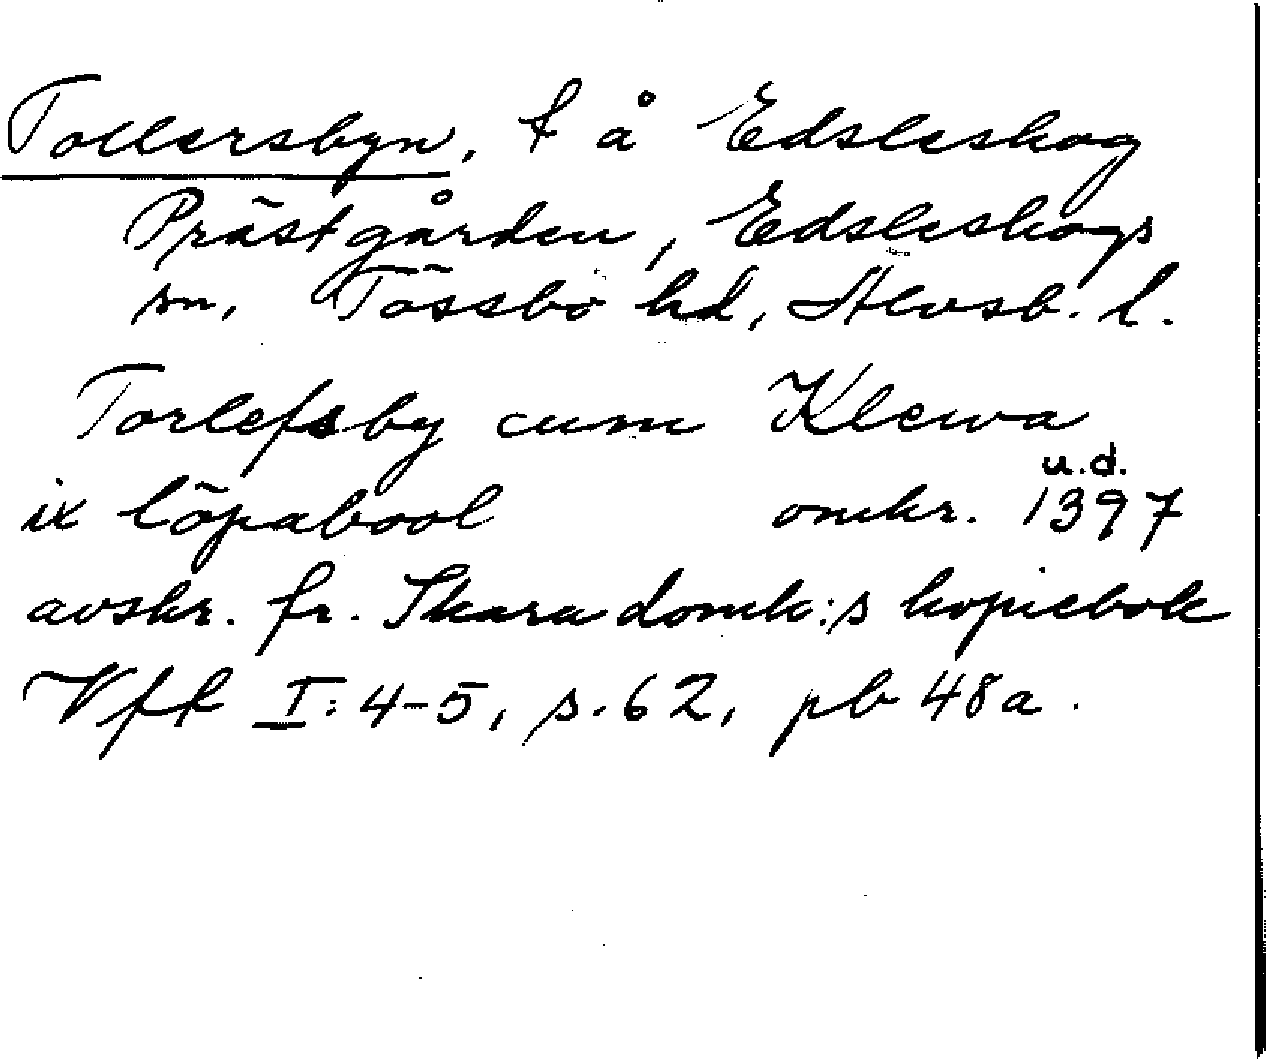 Tollersbyn, t å Edsleskog
Prästgården, Edsleskogs
sn, Tössbo hd, Älvsb. l.
Torlefsby cum Klewa
u.d.
ix löpabool omkr. 1397
avskr. fr. Skara domk:s kopiebok
Vfk I:4-5, s.62, pb 48a.